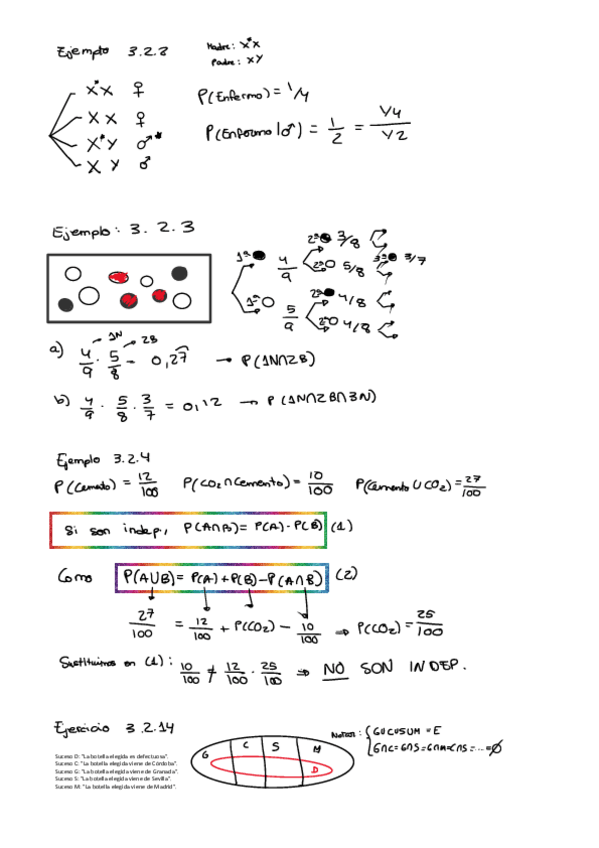 Ejemplo 3.2.2
Madre: X*X
Padre: XY
X*X ♀
XX ♀
X*Y ♂*
XY ♂
P(Enfermo) = 1/4
P(Enfermo|♂) = 1/2 = 1/4 / 1/2
Ejemplo: 3.2.3
1ª● 4/9
2ª● 3/8
2ªO 5/8
3ª● 3/7
1ªO 5/9
2ª● 4/8
2ªO 4/8
a) 4/9 · 5/8 = 0,27 → P(1N∩2B)
1N 2B
b) 4/9 · 5/8 · 3/7 = 0,12 → P(1N∩2B∩3N)
Ejemplo 3.2.4
P(Cemento) = 12/100 P(CO2∩Cemento) = 10/100 P(Cemento∪CO2) = 27/100
Si son indep., P(A∩B) = P(A)·P(B) (1)
Como P(A∪B) = P(A)+P(B)-P(A∩B) (2)
27/100 = 12/100 + P(CO2) - 10/100 ⇒ P(CO2) = 25/100
Sustituimos en (1): 10/100 ≠ 12/100 · 25/100 ⇒ NO SON INDEP.
Ejercicio 3.2.14
Suceso D: "La botella elegida es defectuosa".
Suceso C: "La botella elegida viene de Córdoba".
Suceso G: "La botella elegida viene de Granada".
Suceso S: "La botella elegida viene de Sevilla".
Suceso M: "La botella elegida viene de Madrid".
G C S M
D
Notar: { G∪C∪S∪M = E
G∩C=G∩S=G∩M=C∩S=...=∅